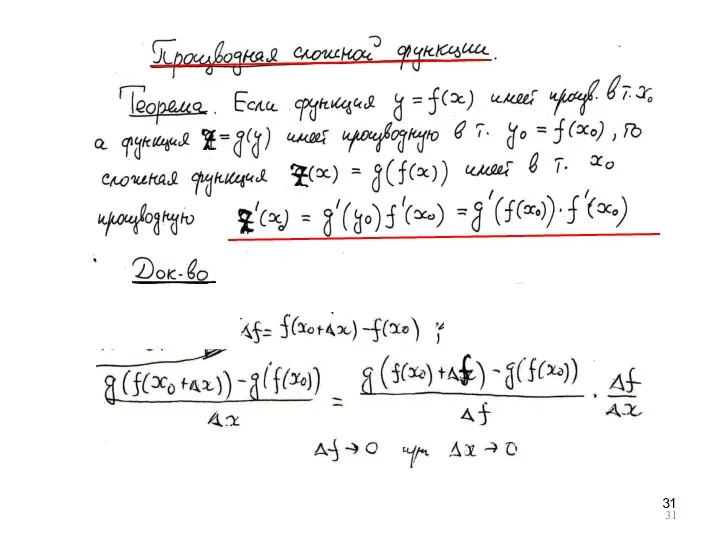 Производная сложной функции.
Теорема. Если функция y = f(x) имеет произв. в т. x₀
а функция z = g(y) имеет производную в т. y₀ = f(x₀), то
сложная функция z(x) = g(f(x)) имеет в т. x₀
производную z'(x₀) = g'(y₀) f'(x₀) = g'(f(x₀)) · f'(x₀)
Док-во
Δf = f(x₀+Δx) − f(x₀) ;
g(f(x₀+Δx)) − g(f(x₀)) / Δx = g(f(x₀)+Δf) − g(f(x₀)) / Δf · Δf / Δx
Δf → 0 при Δx → 0
31
31